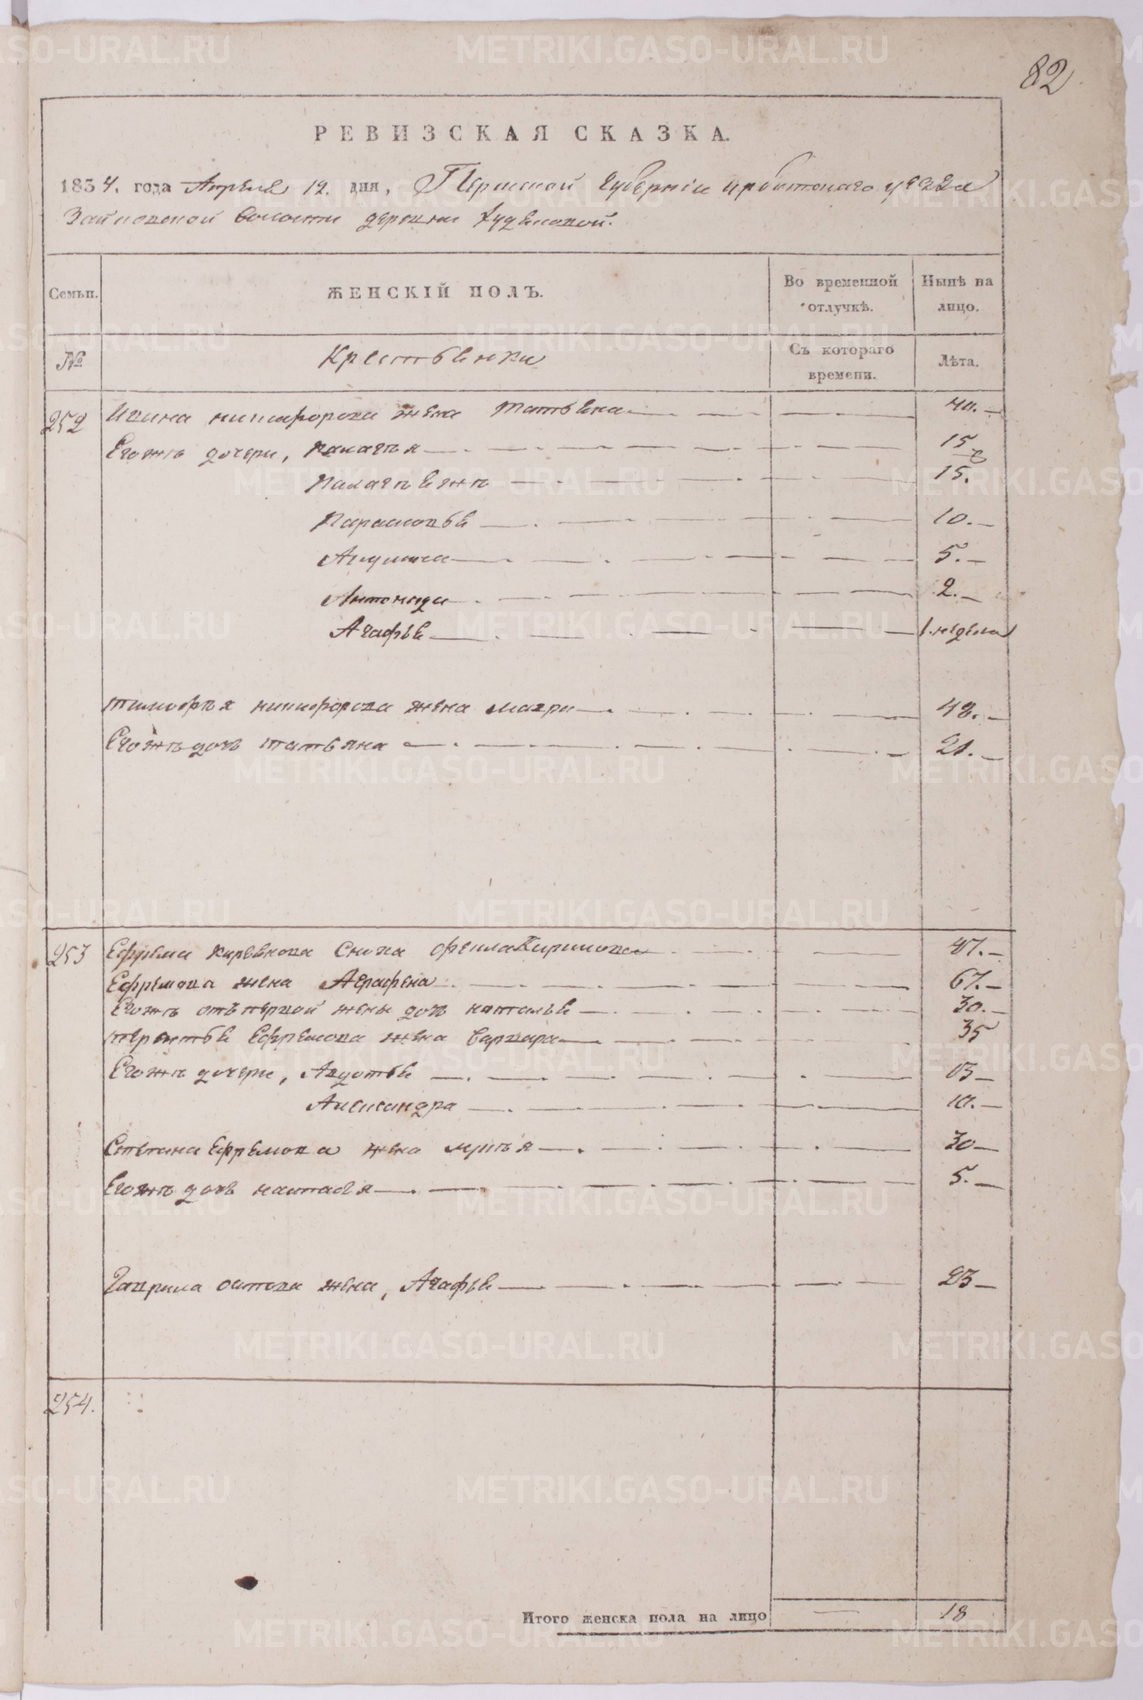 82
РЕВИЗСКАЯ СКАЗКА.
1834. года Апреля 12. дня, Пермской Губерніи Ирбитскаго уезда
Зайковской волости деревни
Семьи.
ЖЕНСКІЙ ПОЛЪ.
Во временной отлучкѣ.
Нынѣ на лицо.
№
Крестьянки
Съ котораго времени.
Лѣта.
252
Ивана Никифорова жена Татьяна 40.
Егожъ дочери, Палагѣя 15
Палагѣяжъ 15.
Парасковья 10.
5.
Антонида 2.
Агафья 1. неделя
Тимофѣя Никифорова жена Мавра 48.
Егожъ дочь Татьяна 21.
253
Ефрема сноха 47.
Ефремова жена Аграфена 67.
Егожъ отъ первой жены дочь Наталья 30.
Терентья Ефремова жена Варвара 35
Егожъ дочери, Авдотья 15
Александра 10.
Степана Ефремова жена 30
Егожъ дочь Настасья 5.
Гаврила жена, Агафья 23
254.
Итого женска пола на лицо 18
METRIKI.GASO-URAL.RU